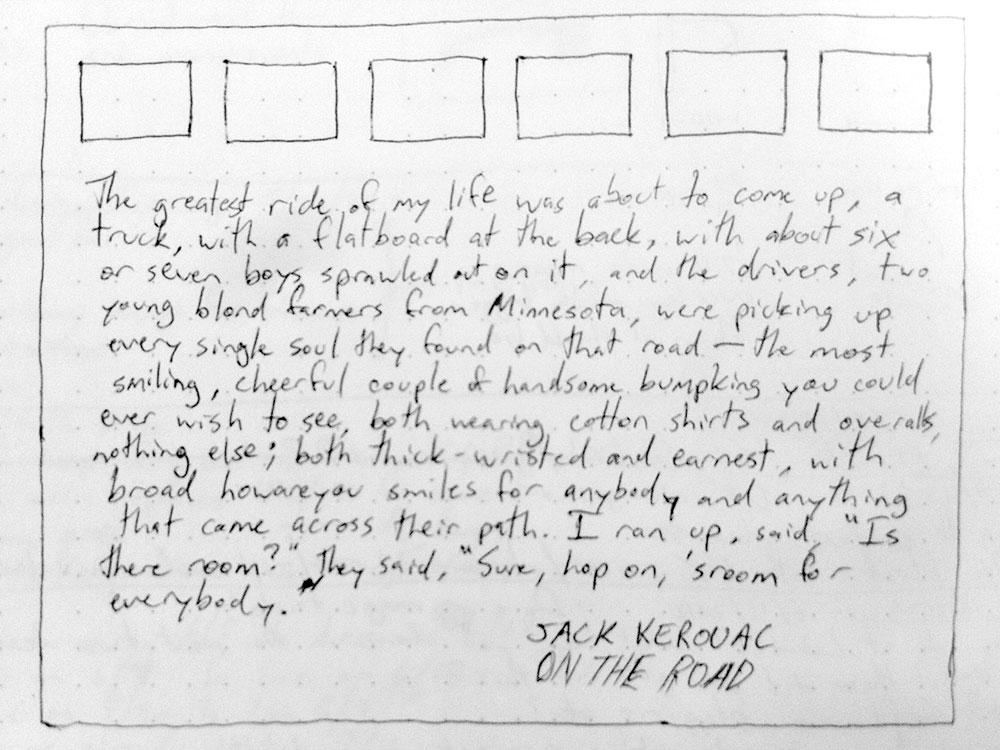 The greatest ride of my life was about to come up, a
truck, with a flatboard at the back, with about six
or seven boys sprawled out on it, and the drivers, two
young blond farmers from Minnesota, were picking up
every single soul they found on that road — the most
smiling, cheerful couple of handsome bumpking you could
ever wish to see, both wearing cotton shirts and overalls,
nothing else; both thick-wristed and earnest, with
broad howareyou smiles for anybody and anything
that came across their path. I ran up, said, "Is
there room?" They said, "Sure, hop on, 'sroom for
everybody."
JACK KEROUAC
ON THE ROAD